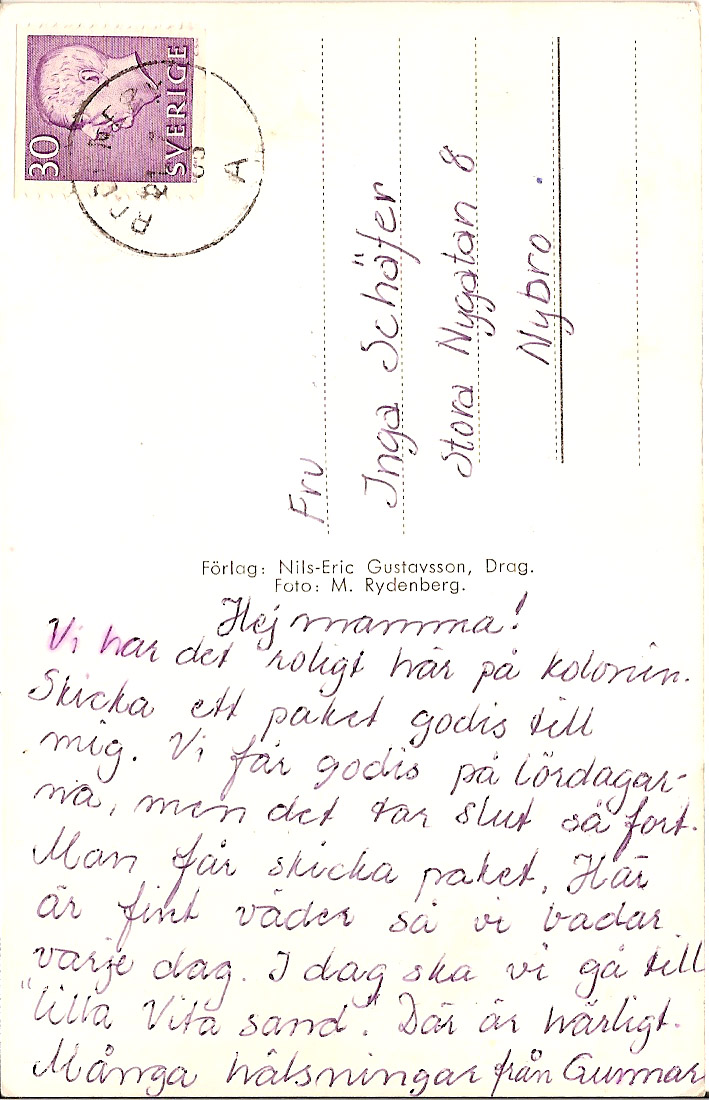 30
SVERIGE
A
Fru
Inga Schäfer
Stora Nygatan 8
Nybro.
Förlag: Nils-Eric Gustavsson, Drag.
Foto: M. Rydenberg.
Hej mamma!
Vi har det roligt här på kolonin.
Skicka ett paket godis till
mig. Vi får godis på lördagar-
na, men det tar slut så fort.
Man får skicka paket. Här
är fint väder så vi badar
varje dag. I dag ska vi gå till
"lilla Vita sand". Där är härligt.
Många hälsningar från Gunnar